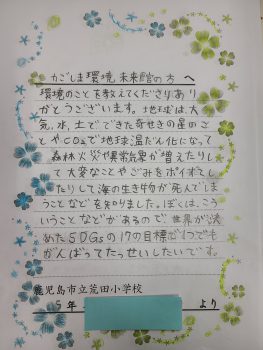 かごしま環境未来館の方へ
環境のことを教えてくださりあり
がとうございます。地球は、大
気、水、土でできた奇せきの星のこ
とやCO₂で地球温だん化になって
森林火災や異常気象が増えたりし
て大変なことやごみをポイすてし
たりして海の生き物が死んでしま
うことなどを知りました。ぼくは、こう
いうことなどがあるので世界が決
めたSDGsの17の目標を1つでも
がんばってたっせいしたいです。
鹿児島市立荒田小学校
5年 より